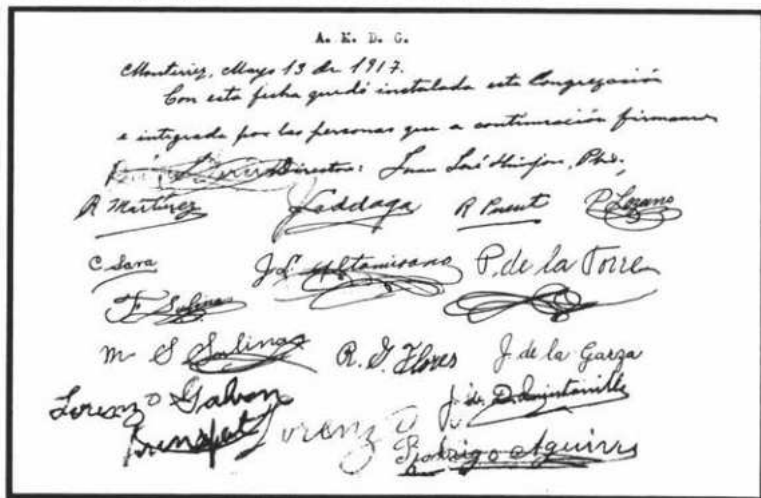 A. M. D. G.
Monterrey, Mayo 13 de 1917.
Con esta fecha quedó instalada esta Congregación
e integrada por las personas que a continuación firmamos
Director: Juan José Hinojosa, Pbro.,
R Martínez R Puent P. Lozano
C Sara J. L. Altamirano P. de la Torre
F Salinas
M S Salinas R. G. Flores J. de la Garza
Lorenzo Galvan J. de D. Quintanilla
Lorenzo
Rodrigo Aguirre